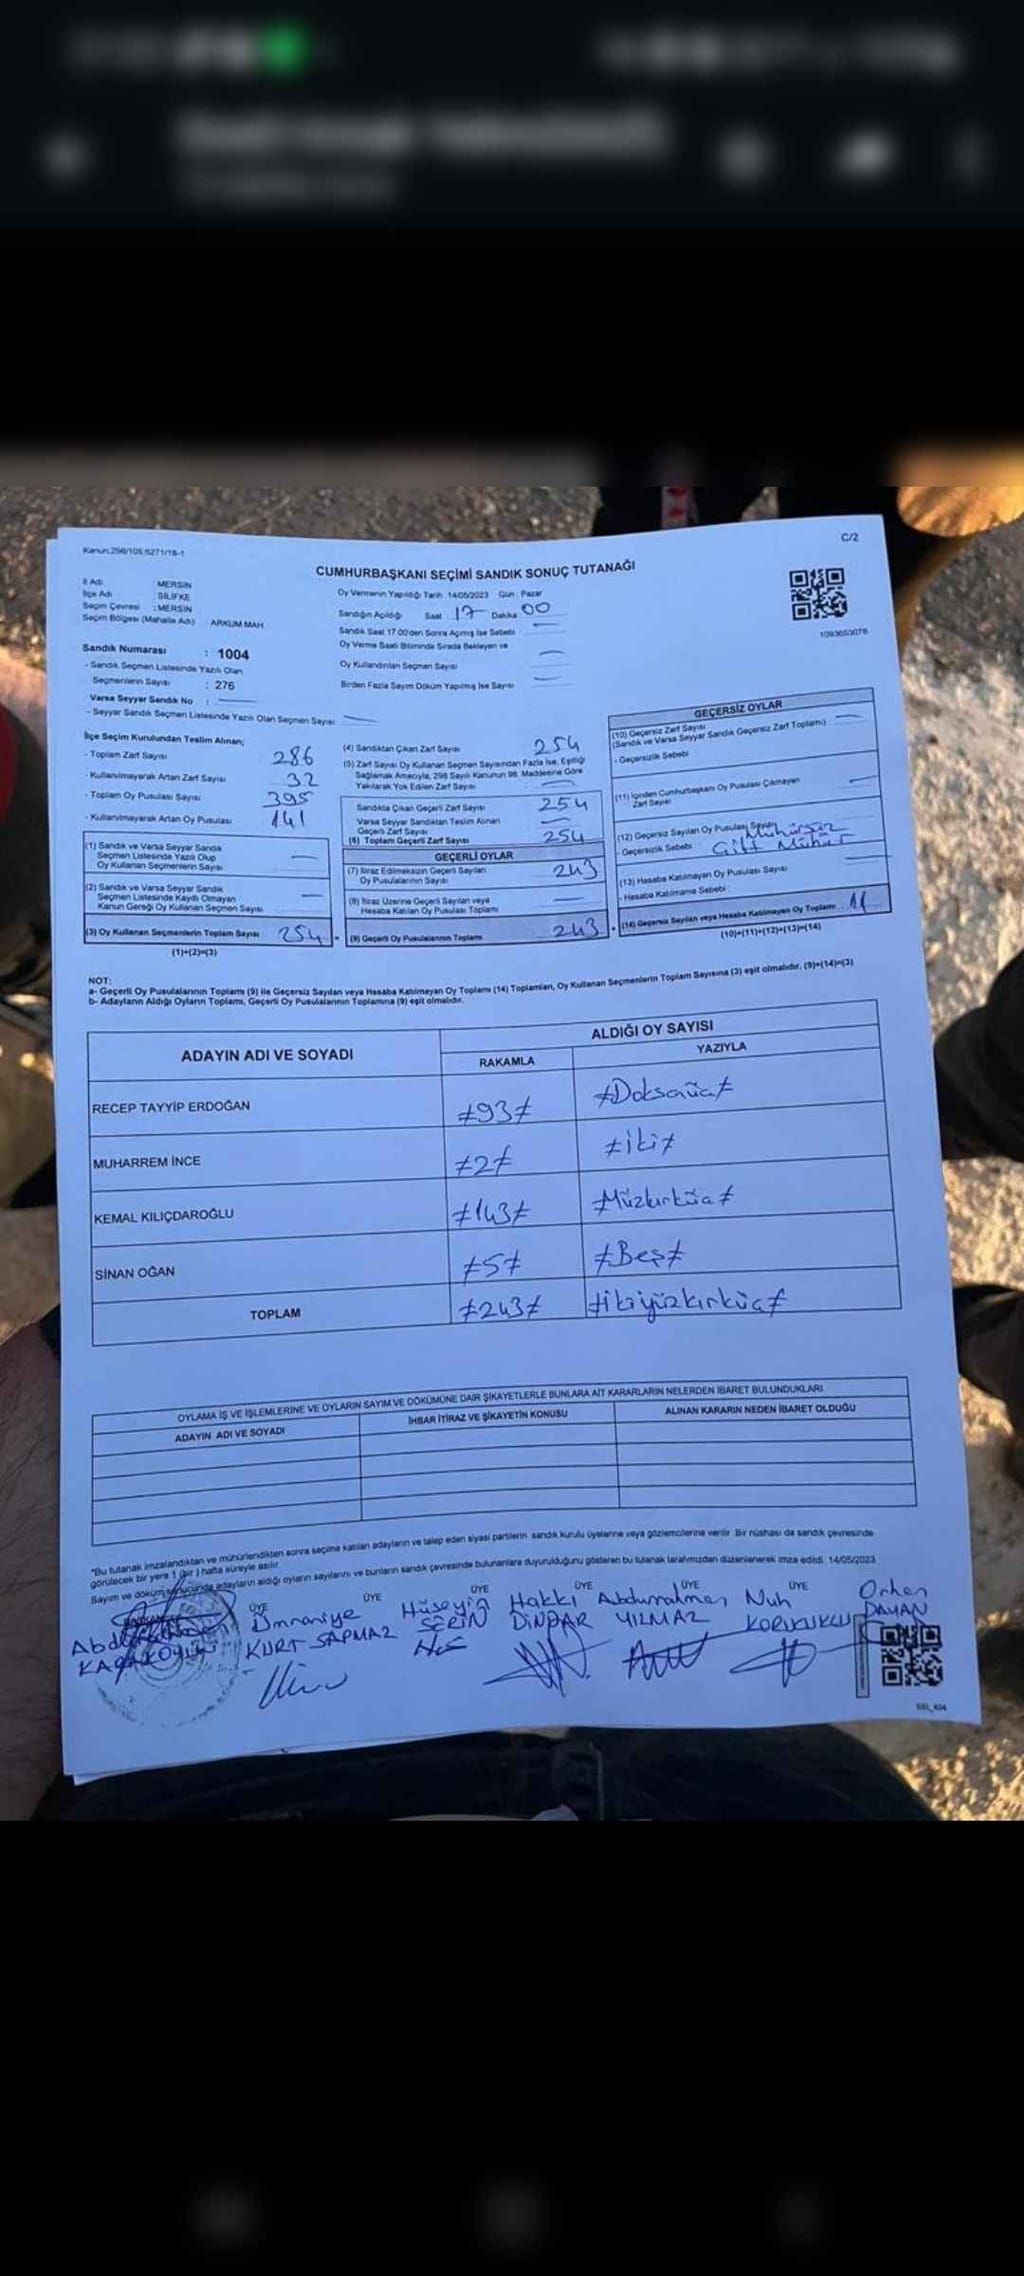 Kanun:298/105,6271/18-1
C/2
CUMHURBAŞKANI SEÇİMİ SANDIK SONUÇ TUTANAĞI
İl Adı : MERSİN
İlçe Adı : SİLİFKE
Seçim Çevresi : MERSİN
Seçim Bölgesi (Mahalle Adı) : ARKUM MAH.
Oy Vermenin Yapıldığı Tarih :14/05/2023 Gün : Pazar
Sandığın Açıldığı Saat 17 Dakika 00
Sandık Saat 17:00'den Sonra Açılmış İse Sebebi :
Oy Verme Saati Bitiminde Sırada Bekleyen ve
Oy Kullandırılan Seçmen Sayısı
Birden Fazla Sayım Döküm Yapılmış İse Sayısı
1093653078
Sandık Numarası : 1004
- Sandık Seçmen Listesinde Yazılı Olan
Seçmenlerin Sayısı : 276
Varsa Seyyar Sandık No :
- Seyyar Sandık Seçmen Listesinde Yazılı Olan Seçmen Sayısı
İlçe Seçim Kurulundan Teslim Alınan;
- Toplam Zarf Sayısı 286
- Kullanılmayarak Artan Zarf Sayısı 32
- Toplam Oy Pusulası Sayısı 395
- Kullanılmayarak Artan Oy Pusulası 141
(1) Sandık ve Varsa Seyyar Sandık
Seçmen Listesinde Yazılı Olup
Oy Kullanan Seçmenlerin Sayısı
(2) Sandık ve Varsa Seyyar Sandık
Seçmen Listesinde Kayıtlı Olmayan
Kanun Gereği Oy Kullanan Seçmen Sayısı
(3) Oy Kullanan Seçmenlerin Toplam Sayısı 254
(1)+(2)=(3)
(4) Sandıktan Çıkan Zarf Sayısı 254
(5) Zarf Sayısı Oy Kullanan Seçmen Sayısından Fazla İse, Eşitliği
Sağlamak Amacıyla, 298 Sayılı Kanunun 98. Maddesine Göre
Yakılarak Yok Edilen Zarf Sayısı
Sandıkta Çıkan Geçerli Zarf Sayısı 254
Varsa Seyyar Sandıktan Teslim Alınan
Geçerli Zarf Sayısı
(6) Toplam Geçerli Zarf Sayısı 254
GEÇERLİ OYLAR
(7) İtiraz Edilmeksizin Geçerli Sayılan
Oy Pusulalarının Sayısı 243
(8) İtiraz Üzerine Geçerli Sayılan veya
Hesaba Katılan Oy Pusulası Toplamı
(9) Geçerli Oy Pusulalarının Toplamı 243
GEÇERSİZ OYLAR
(10) Geçersiz Zarf Sayısı
(Sandık ve Varsa Seyyar Sandık Geçersiz Zarf Toplamı)
- Geçersizlik Sebebi
(11) İçinden Cumhurbaşkanı Oy Pusulası Çıkmayan
Zarf Sayısı
(12) Geçersiz Sayılan Oy Pusulası Sayısı Mühürsüz
- Geçersizlik Sebebi Çift Mühür
(13) Hesaba Katılmayan Oy Pusulası Sayısı
- Hesaba Katılmama Sebebi :
(14) Geçersiz Sayılan veya Hesaba Katılmayan Oy Toplamı 11
(10)+(11)+(12)+(13)=(14)
NOT:
a- Geçerli Oy Pusulalarının Toplamı (9) ile Geçersiz Sayılan veya Hesaba Katılmayan Oy Toplamı (14) Toplamları, Oy Kullanan Seçmenlerin Toplam Sayısına (3) eşit olmalıdır. (9)+(14)=(3)
b- Adayların Aldığı Oyların Toplamı, Geçerli Oy Pusulalarının Toplamına (9) eşit olmalıdır.
ADAYIN ADI VE SOYADI
ALDIĞI OY SAYISI
RAKAMLA YAZIYLA
RECEP TAYYİP ERDOĞAN ≠93≠ ≠Doksanüç≠
MUHARREM İNCE ≠2≠ ≠iki≠
KEMAL KILIÇDAROĞLU ≠143≠ ≠Yüzkırküç≠
SİNAN OĞAN ≠5≠ ≠Beş≠
TOPLAM ≠243≠ ≠ikiyüzkırküç≠
OYLAMA İŞ VE İŞLEMLERİNE VE OYLARIN SAYIM VE DÖKÜMÜNE DAİR ŞİKAYETLERLE BUNLARA AİT KARARLARIN NELERDEN İBARET BULUNDUKLARI
ADAYIN ADI VE SOYADI
İHBAR İTİRAZ VE ŞİKAYETİN KONUSU
ALINAN KARARIN NEDEN İBARET OLDUĞU
"Bu tutanak imzalandıktan ve mühürlendikten sonra seçime katılan adayların ve talep eden siyasi partilerin sandık kurulu üyelerine veya gözlemcilerine verilir. Bir nüshası da sandık çevresinde
görülecek bir yere 1 (bir) hafta süreyle asılır.
Sayım ve döküm sonucunda adayların aldığı oyların sayılarını ve bunların sandık çevresinde bulunanlara duyurulduğunu gösteren bu tutanak tarafımızdan düzenlenerek imza edildi. 14/05/2023
ÜYE ÜYE ÜYE ÜYE ÜYE ÜYE
Ümraniye Hüseyin Hakkı Abdurrahman Nuh Orhan
KURT SAPMAZ SERİN DİNDAR YILMAZ